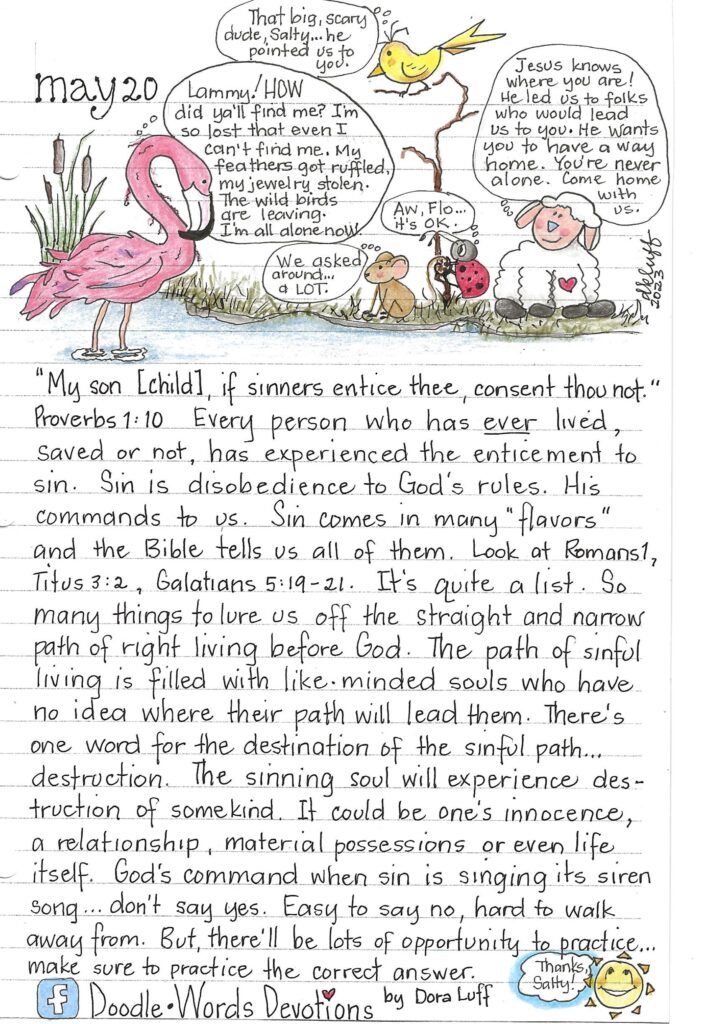 That big, scary
dude, Salty... he
pointed us to
you.
may 20
Lammy! HOW
did ya'll find me? I'm
so lost that even I
can't find me. My
feathers got ruffled,
my jewelry stolen.
The wild birds
are leaving.
I'm all alone now.
Jesus knows
where you are!
He led us to folks
who would lead
us to you. He wants
you to have a way
home. You're never
alone. Come home
with
us.
Aw, Flo...
it's OK.
We asked
around...
a LOT.
dkluff
2023
"My son [child], if sinners entice thee, consent thou not."
Proverbs 1:10 Every person who has ever lived,
saved or not, has experienced the enticement to
sin. Sin is disobedience to God's rules. His
commands to us. Sin comes in many "flavors"
and the Bible tells us all of them. Look at Romans 1,
Titus 3:2, Galatians 5:19-21. It's quite a list. So
many things to lure us off the straight and narrow
path of right living before God. The path of sinful
living is filled with like-minded souls who have
no idea where their path will lead them. There's
one word for the destination of the sinful path...
destruction. The sinning soul will experience des-
truction of somekind. It could be one's innocence,
a relationship, material possessions or even life
itself. God's command when sin is singing its siren
song... don't say yes. Easy to say no, hard to walk
away from. But, there'll be lots of opportunity to practice...
make sure to practice the correct answer.
Thanks,
Salty!
f Doodle•Words Devotions by Dora Luff